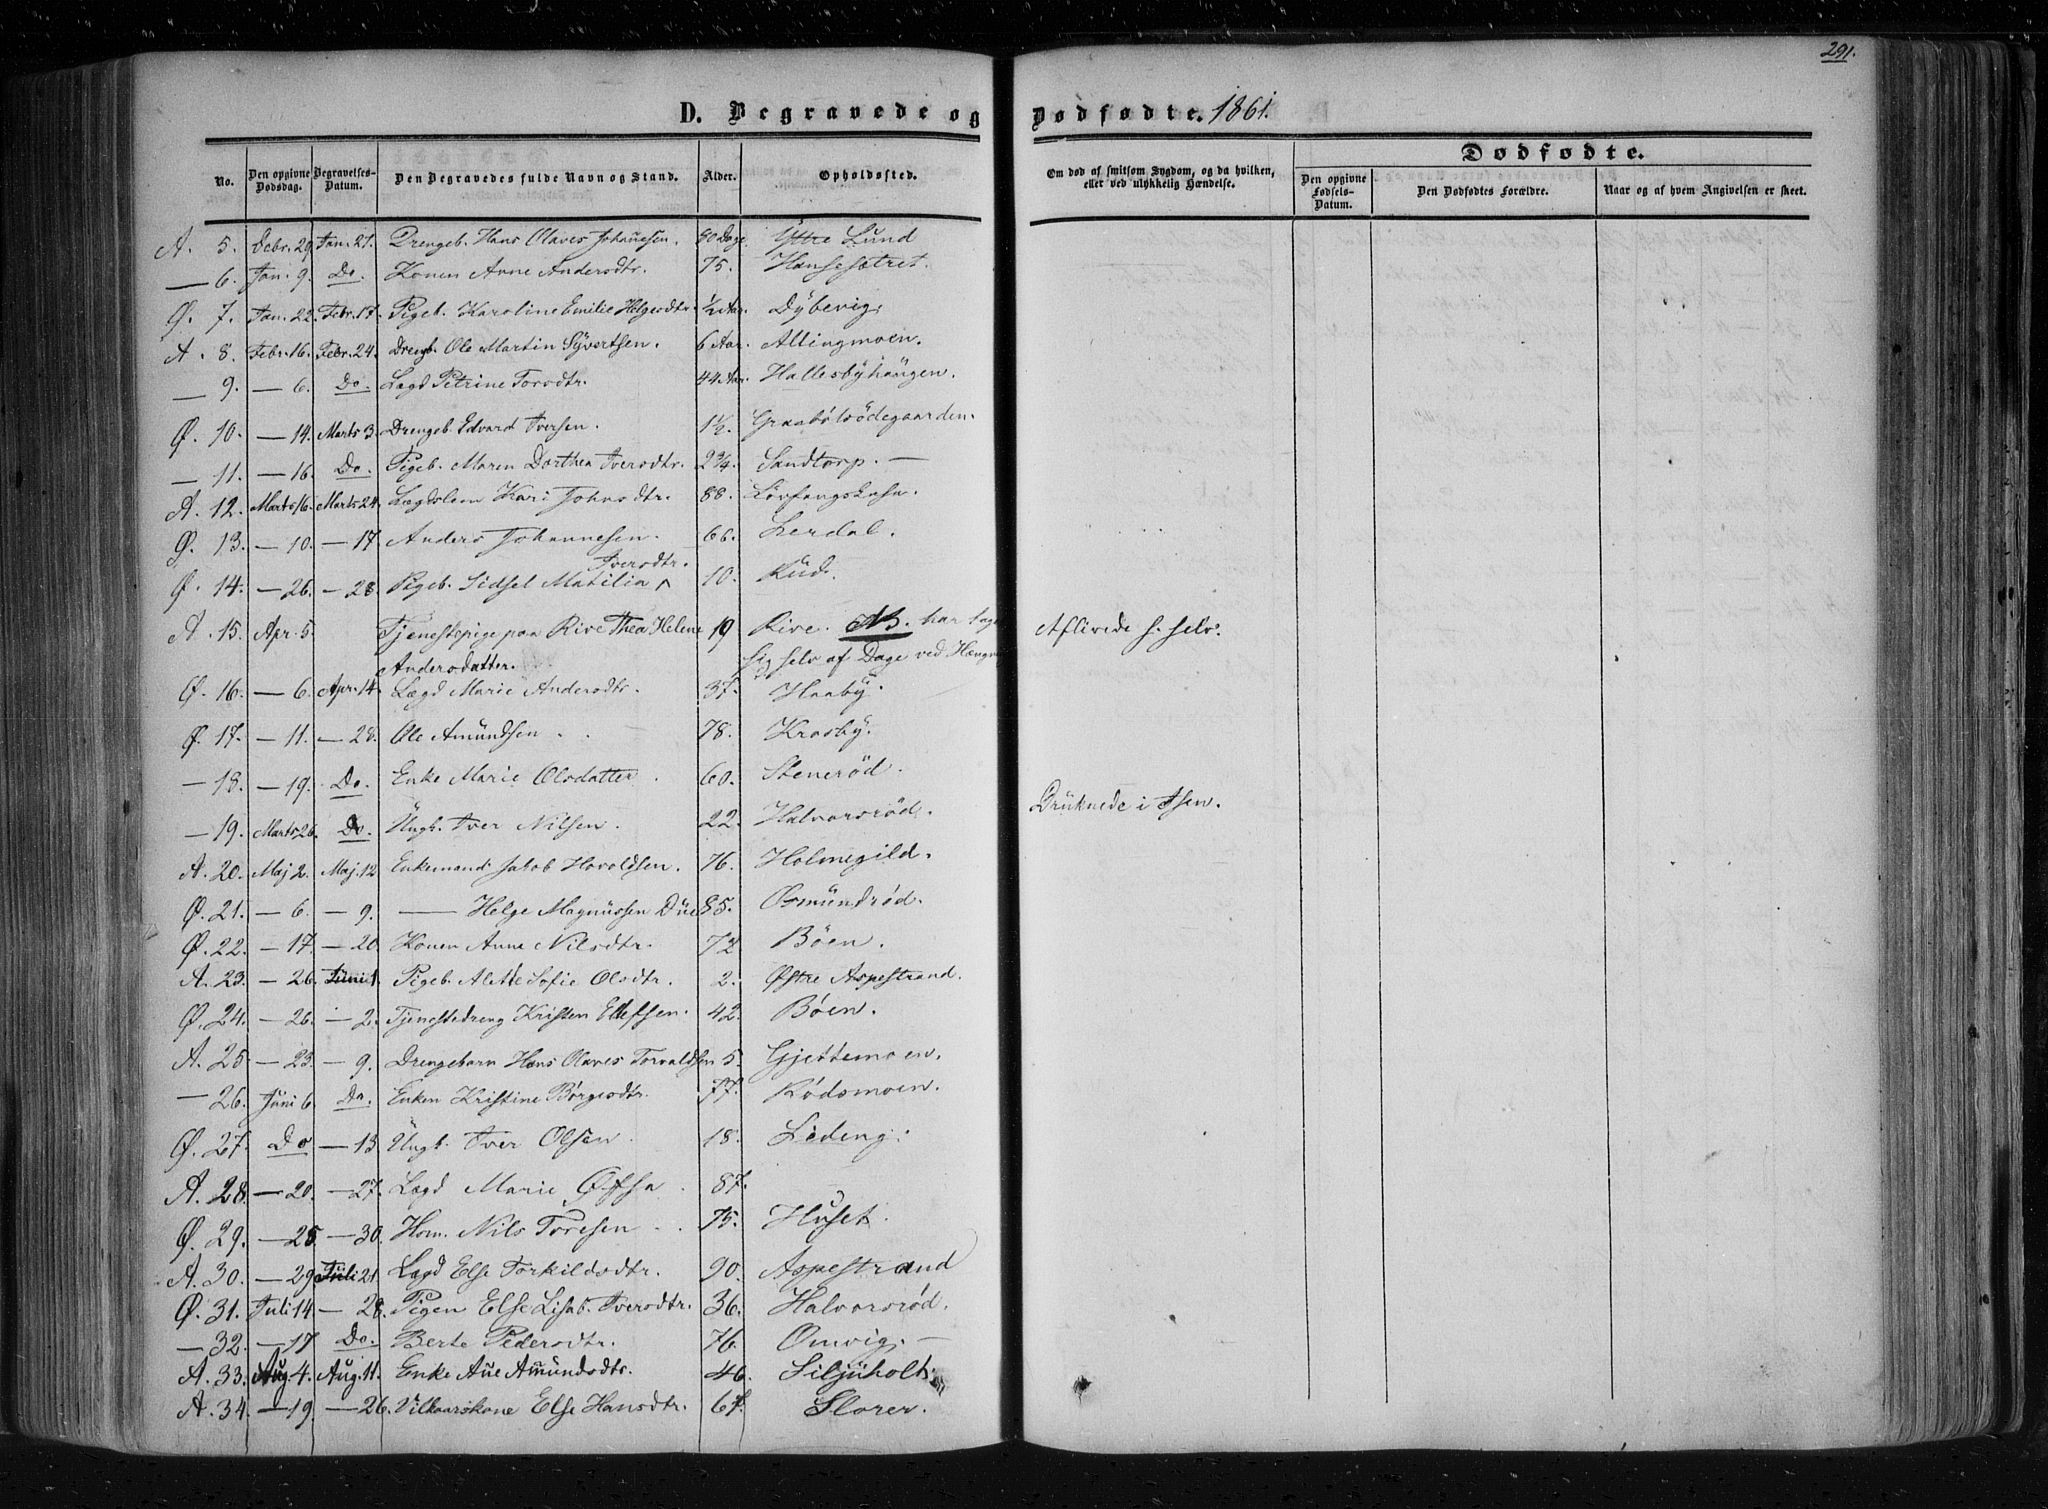 291.
D. Begravede og Dødfødte. 1861.
No. Den opgivne Dødsdag. Begravelses-Datum. Den Begravedes fulde Navn og Stand. Alder. Opholdssted. Om død af smitsom Sygdom, og da hvilken, eller ved ulykkelig Hændelse. Dødfødte.
Den opgivne Fødsels-Datum. Den Dødfødtes Forældre. Naar og af hvem Angivelsen er skeet.
A. 5. Febr. 29 Jan. 27. Drengeb. Hans Olaves Johanesen. 80 Dage Yttre Lund
— 6. Jan. 9. Do. Konen Anne Andersdtr. 75. Hansesætret.
Ø. 7. Jan. 22. Febr. 17. Pigeb. Karoline Emilie Helgesdtr. 1/2 Aar. Dybevig.
A. 8. Febr. 16. Febr. 24. Drengb. Ole Martin Syvertsen. 6 Aar. Altingmoen.
— 9. — 6. Do. Lægd Petrine Torsdtr. 44 Aar. Hallesbyhaugen.
Ø. 10. — 14. Marts 3. Drengeb. Edvard Iversen. 1 1/2. Graabølsødegaarden.
— 11. — 16. Do. Pigeb. Maren Dorthea Iversdtr. 2 3/4. Sandtorp. —
A. 12. Marts 16. Marts 24. Lægdslem Kari Johnsdtr. 88. Løvfangskasa.
Ø. 13. — 10. — 17. Anders Johannesen. 66. Lerdal.
Iversdtr.
Ø. 14. — 26. — 28. Pigeb. Sidsel Matilia ^ 10. Rud.
A. 15. Apr. 5. Tjenestepige paa Rive Thea Helene 19 Rive. NB. har tage Aflivede s. selv.
Andersdatter. sig selv af Dage ved Hængni
Ø. 16. — 6. Apr. 14. Lægd Marie Andersdtr. 37. Haaby.
Ø. 17. — 11. — 28. Ole Amundsen. 78. Krosby.
— 18. — 19. Do. Enke Marie Olsdatter. 60. Stenerød.
— 19. Marts 26. Do. Ungk. Iver Nilsen. 22. Halvorsrød. Druknede i Isen.
A. 20. Maj 2. Maj. 12 Enkemand Jakob Haroldsen. 76. Holmegild.
Ø. 21. — 6. — 9. — Helge Magnussen Due 85. Osmundrød.
Ø. 22. — 17. — 20. Konen Anne Nilsdtr. 72 Bøen.
A. 23. — 26. Juni 1. Pigeb. Alette Sofie Olsdtr. 2. Østre Aspestrand.
Ø. 24. — 26. — 2. Tjenestedreng Kristen Ellefsen. 42. Bøen.
A. 25 — 23. — 9. Drengebarn Hans Olaves Torvaldsen 5 Gjettemoen.
— 26. Juni 6. Do. Enken Kristine Børgesdtr. 77. Rødsmoen.
Ø. 27. Do — 13. Ungk. Iver Olsen. 18. Lideng.
A. 28. — 20. — 27. Lægd Marie 87.
Ø. 29. — 25. — 30. Hsm. Nils Toresen 75. Huset.
A. 30. — 29. Juli 21. Lægd Else Torkildsdtr. 90. Aspestrand
Ø. 31. Juli 14 — 28. Pigen Else Lisab. Iversdtr. 36. Halvorsrød.
— 32. — 17 Do. Berte Pedersdtr. 76. Omvig. —
A. 33. Aug. 4. Aug. 11. Enke Ane Amundsdtr. 46. Siljuholt.
A. 34. — 19. — 26. Vilkaarskone Else Hansdtr. 67. Slorer.